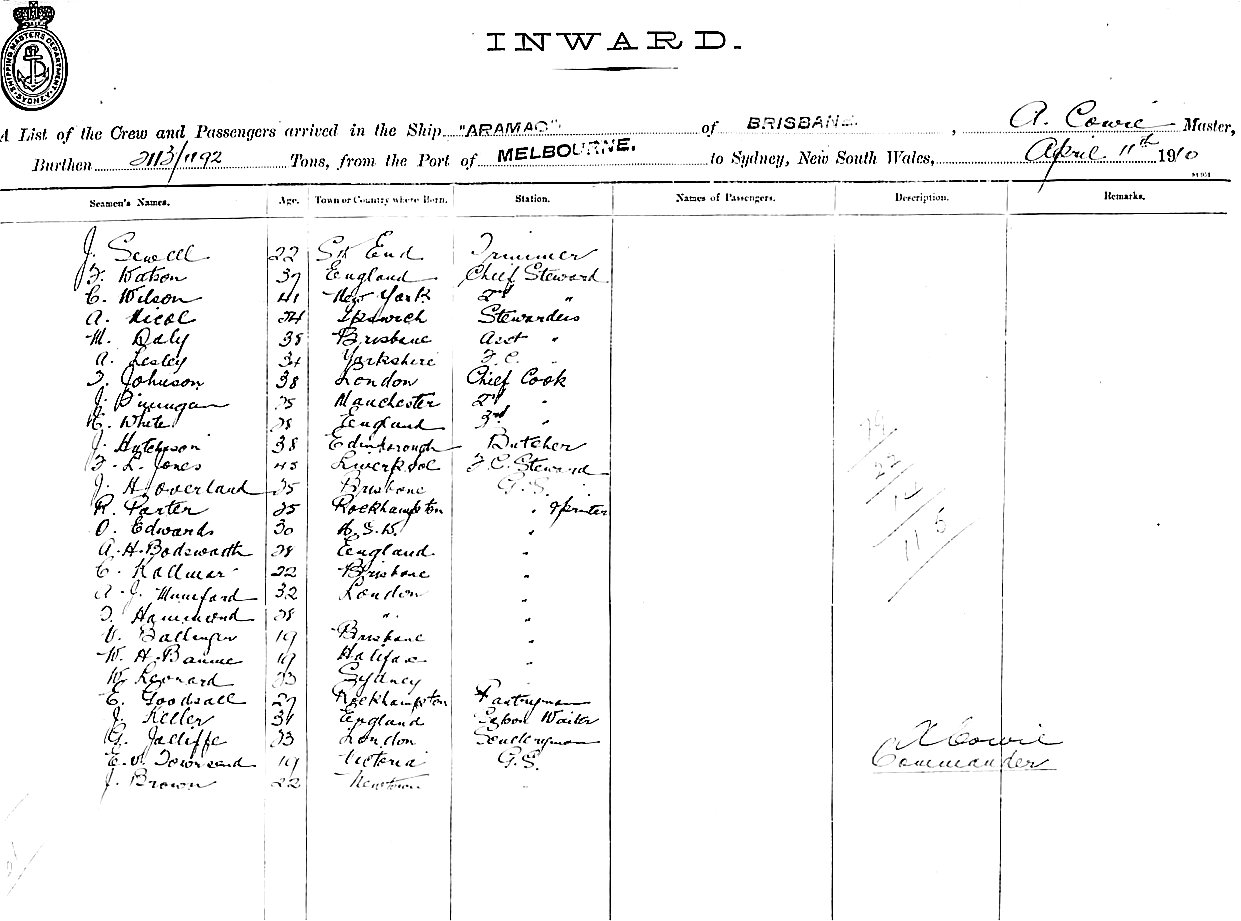 SHIPPING MASTERS DEPARTMENT SYDNEY
INWARD.
A List of the Crew and Passengers arrived in the Ship "ARAMAC" of BRISBANE, A. Cowie Master,
Burthen 2113/1192 Tons, from the Port of MELBOURNE. to Sydney, New South Wales, April 11th 1910
Seamen's Names. Age. Town or Country where Born. Station. Names of Passengers. Description. Remarks.
J. Sewell 22 Sth End Trimmer
F. Watson 37 England Chief Steward
C. Wilson 41 New York 2nd "
A. Nicol 24 Ipswich Stewardess
M. Daly 38 Brisbane Asst "
A. Lesley 34 Yorkshire F.C. "
F. Johnson 38 London Chief Cook
J. Dunigan 25 Manchester 2nd "
C. White 28 England 3rd "
J. Hutchison 38 Edinborough Butcher
F. L. Jones 43 Liverpool F.C. Steward
J. H. Overland 25 Brisbane G.S.
R. Porter 25 Rockhampton " & Printer
O. Edwards 30 N.S.W. "
A. H. Bodsworth 28 England "
C. Kallmar 22 Brisbane "
A. J. Mumford 32 London "
T. Hammond 28 " "
V. Ballinger 19 Brisbane "
W. H. 19 Halifax "
W. Leonard 23 Sydney
E. Goodsall 27 Rockhampton Pantryman
J. Keller 31 England Saloon Waiter
G. Jacliffe 23 London Sculleryman
E. V. Townsend 19 Victoria G.S.
J. Brown 22 Newtown "
22
14
115
A Cowie
Commander